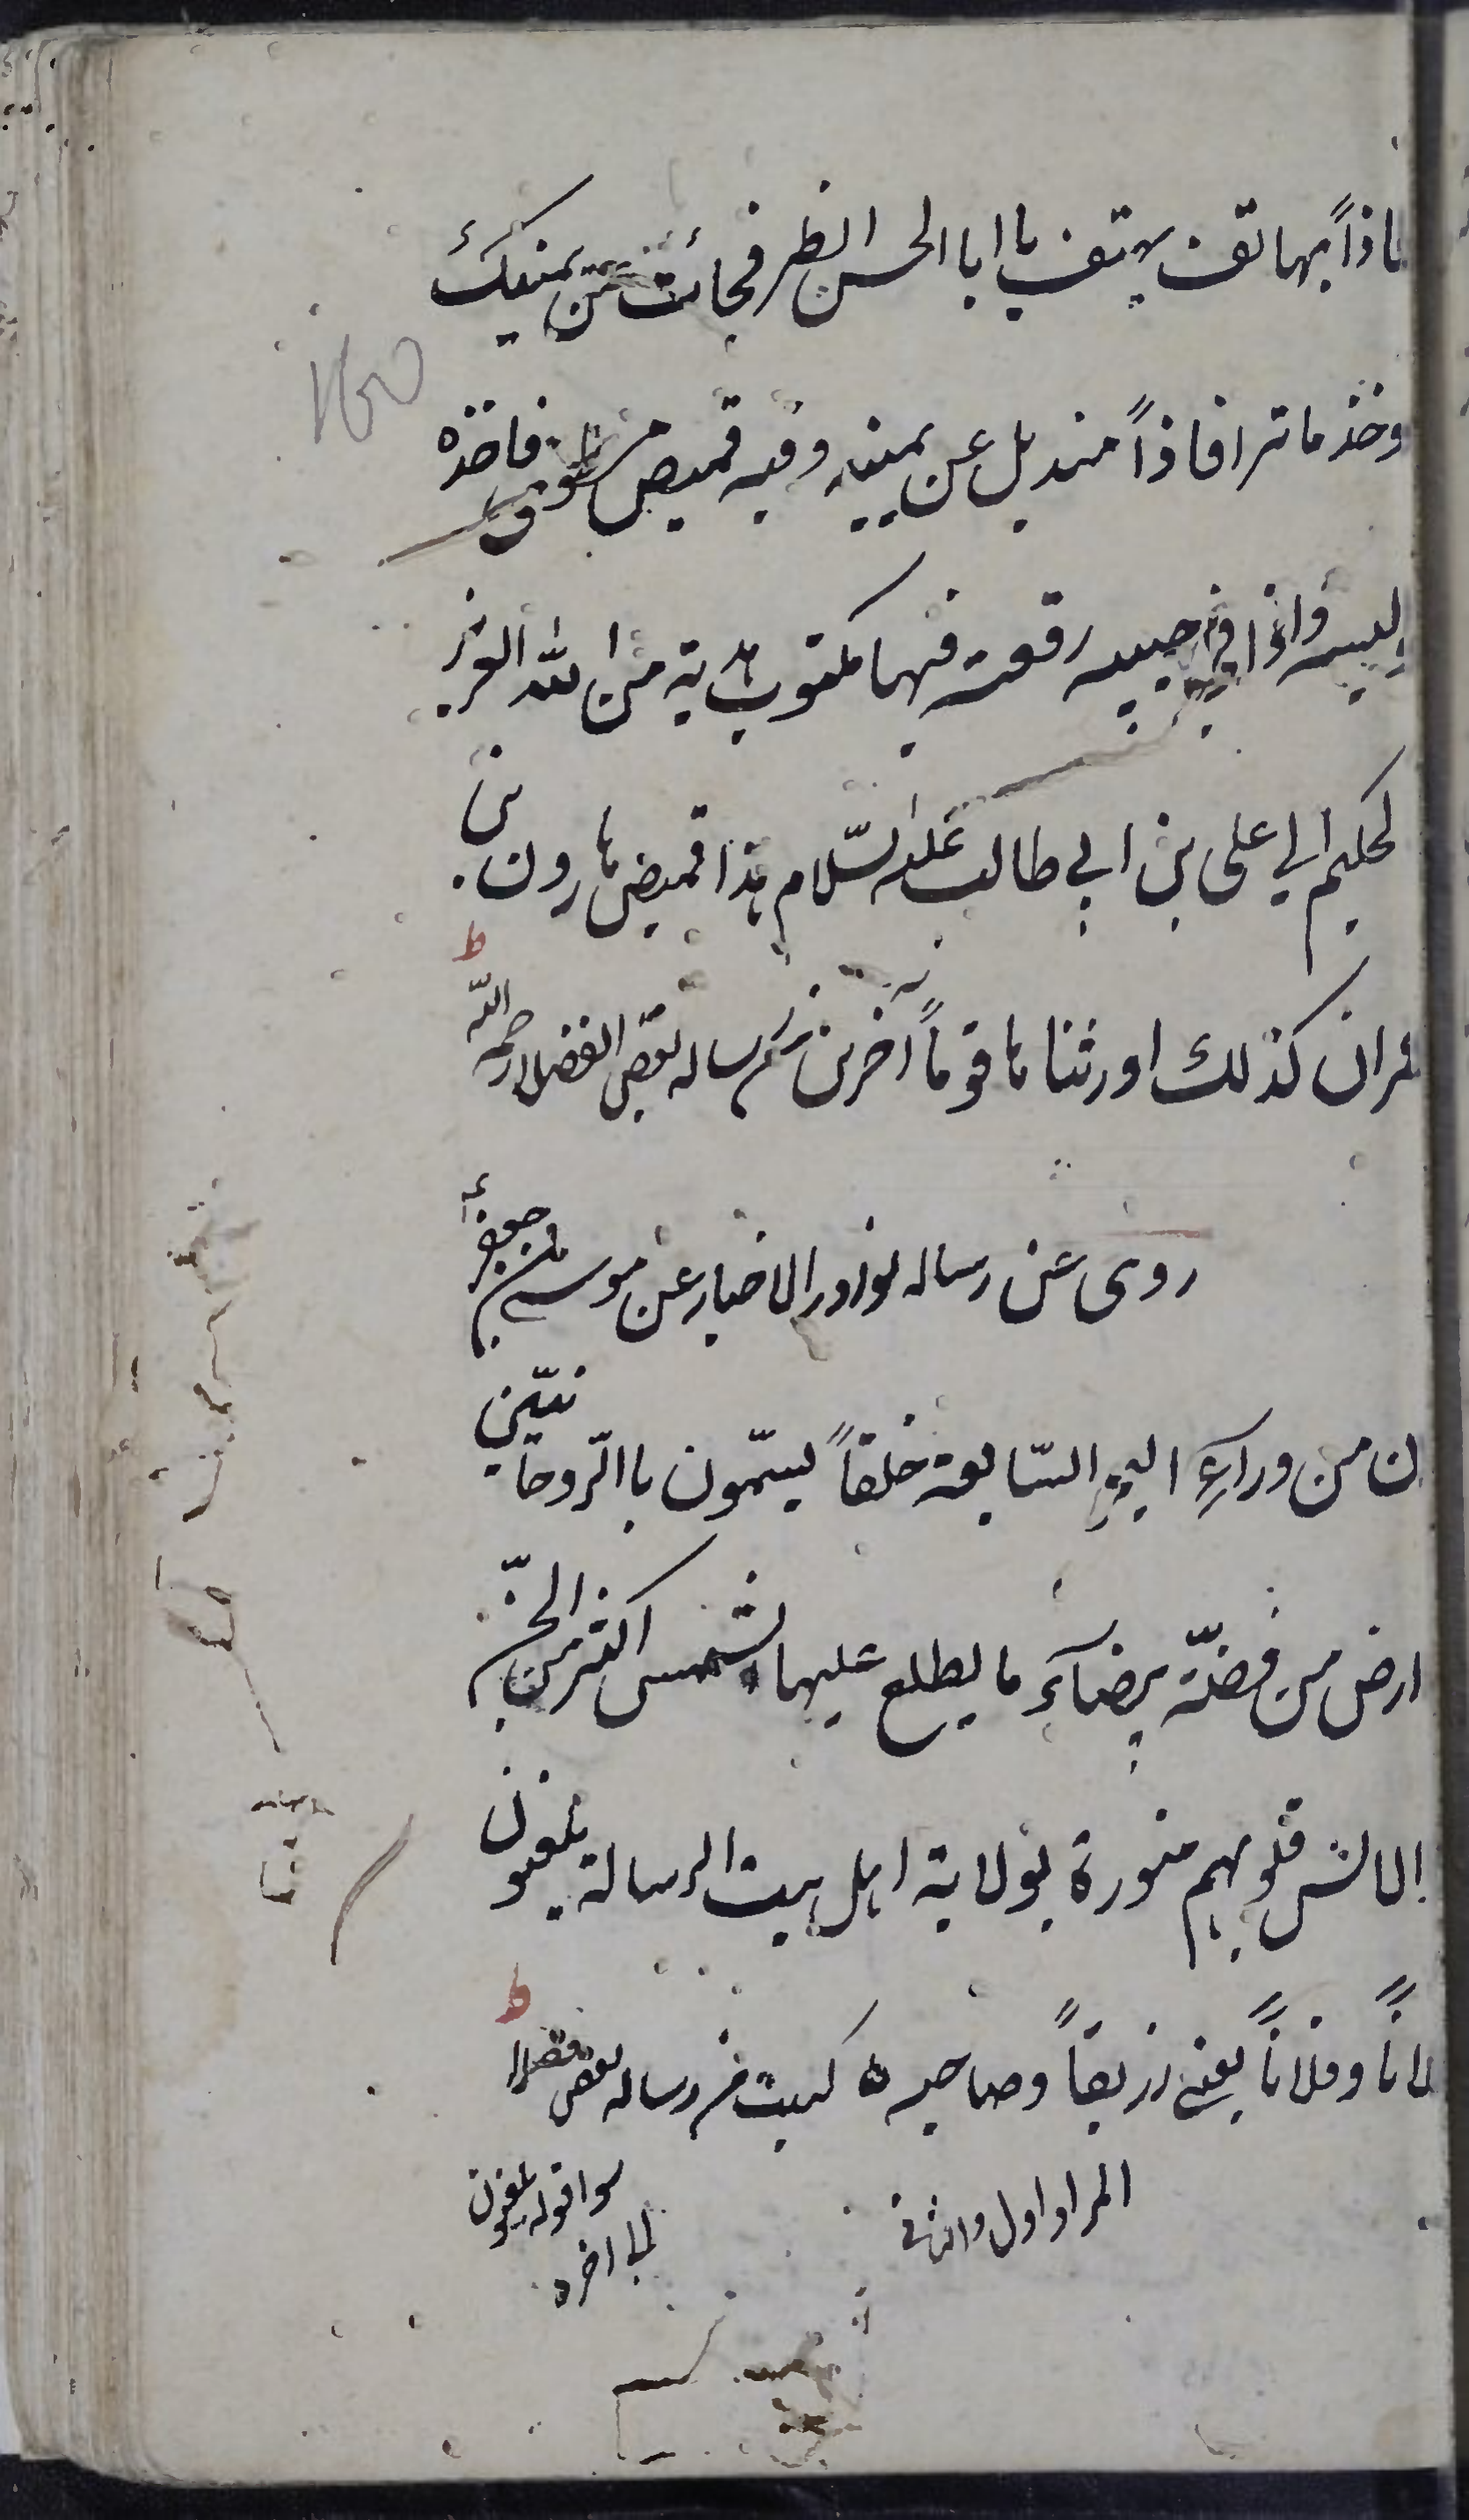 فاذاً بهاتف يهتف يا ابا الحسن انظر فجائت عن يمينك
وخذ ما ترا فاذاً منديل عن يمينه وفيه قميص مطوى فاخذه
ولبسه واذا فى جيبه رقعة فيها مكتوب هدية من الله العزيز
لحكيم الي على بن ابي طالب عليه السّلام هذا قميص هارون بن
عمران كذلك اورثناها قوماً آخرين رساله بعض الفضلا رحمه الله
روى عن رساله نوادر الاخبار عن موسى بن جعفر
ان من وراءِ اليم السّابعة خلقاً يسمّون باالرّوحانيّين
ارض من فضّة بيضآء ما يطلع عليها الشمس اكثر من الجنّ
الانس قلوبهم منورة بولاية اهل بيت الرسالة يلعنون
فلاناً وفلاناً يعنى زريقاً وصاحبه كتبت من رساله بعض فضلا
المراد اول والثانى
سوا قوله يلعنون
الى اخره